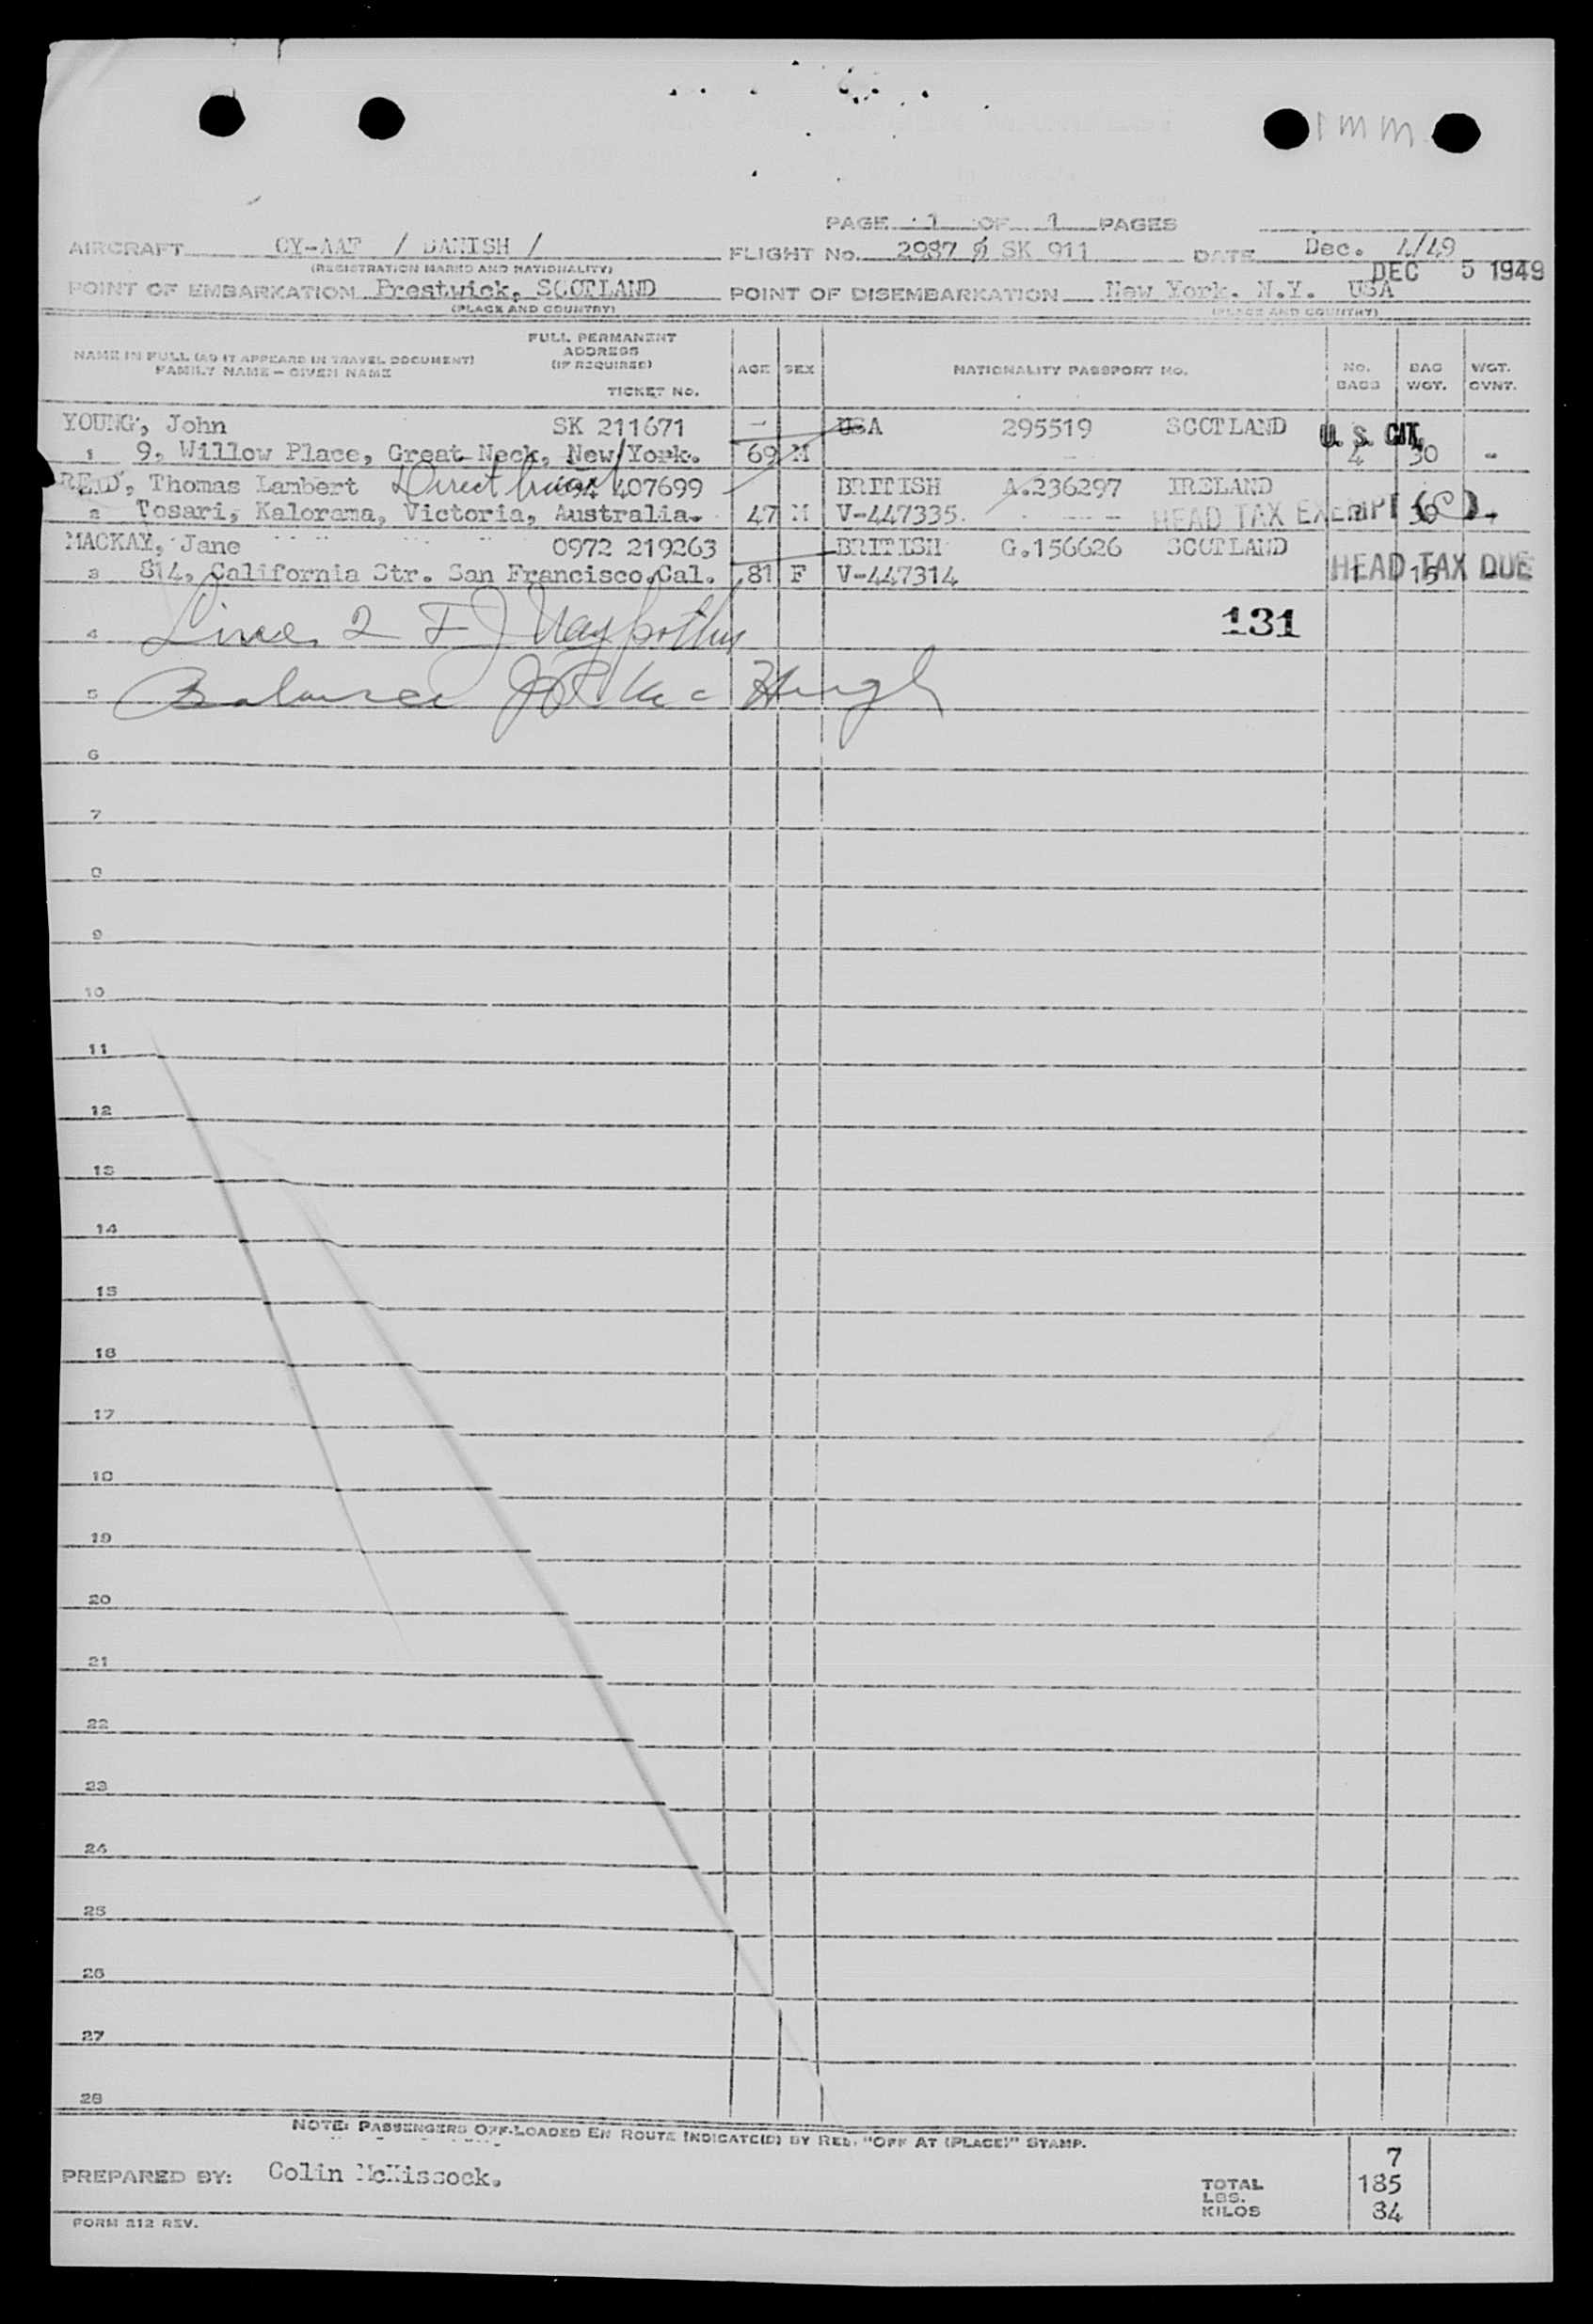 1 mm
PAGE 1 OF 1 PAGES
AIRCRAFT OY-AAF / DANISH / FLIGHT No. 2987 SK 911 DATE Dec. 4/49
(REGISTRATION MARKS AND NATIONALITY)
DEC 5 1949
POINT OF EMBARKATION Prestwick, SCOTLAND POINT OF DISEMBARKATION New York. N.Y. USA
(PLACE AND COUNTRY) (PLACE AND COUNTRY)
NAME IN FULL (AS IT APPEARS IN TRAVEL DOCUMENT)
FAMILY NAME - GIVEN NAME
FULL PERMANENT
ADDRESS
(IF REQUIRED)
TICKET NO.
AGE SEX NATIONALITY PASSPORT No. No. BAGS BAG WGT. WGT. OVNT.
YOUNG, John SK 211671 - USA 295519 SCOTLAND U. S. CIT.
1 9, Willow Place, Great Neck, New York. 69 M 4 30 -
REID, Thomas Lambert Direct 407699 BRITISH A.236297 IRELAND
2 Tosari, Kalorama, Victoria, Australia. 47 M V-447335. HEAD TAX EXEMPT
MACKAY, Jane 0972 219263 BRITISH G.156626 SCOTLAND
3 814, California Str. San Francisco, Cal. 81 F V-447314 HEAD TAX DUE 1 15
131
4 Line 2 F J
5 Balance Mc Hugh
6
7
8
9
10
11
12
13
14
15
16
17
18
19
20
21
22
23
24
25
26
27
28
NOTE: PASSENGERS OFF-LOADED EN ROUTE INDICATE(D) BY RED. "OFF AT (PLACE)" STAMP.
PREPARED BY: Colin McKissock.
7
TOTAL
LBS. 185
KILOS 84
FORM 212 REV.